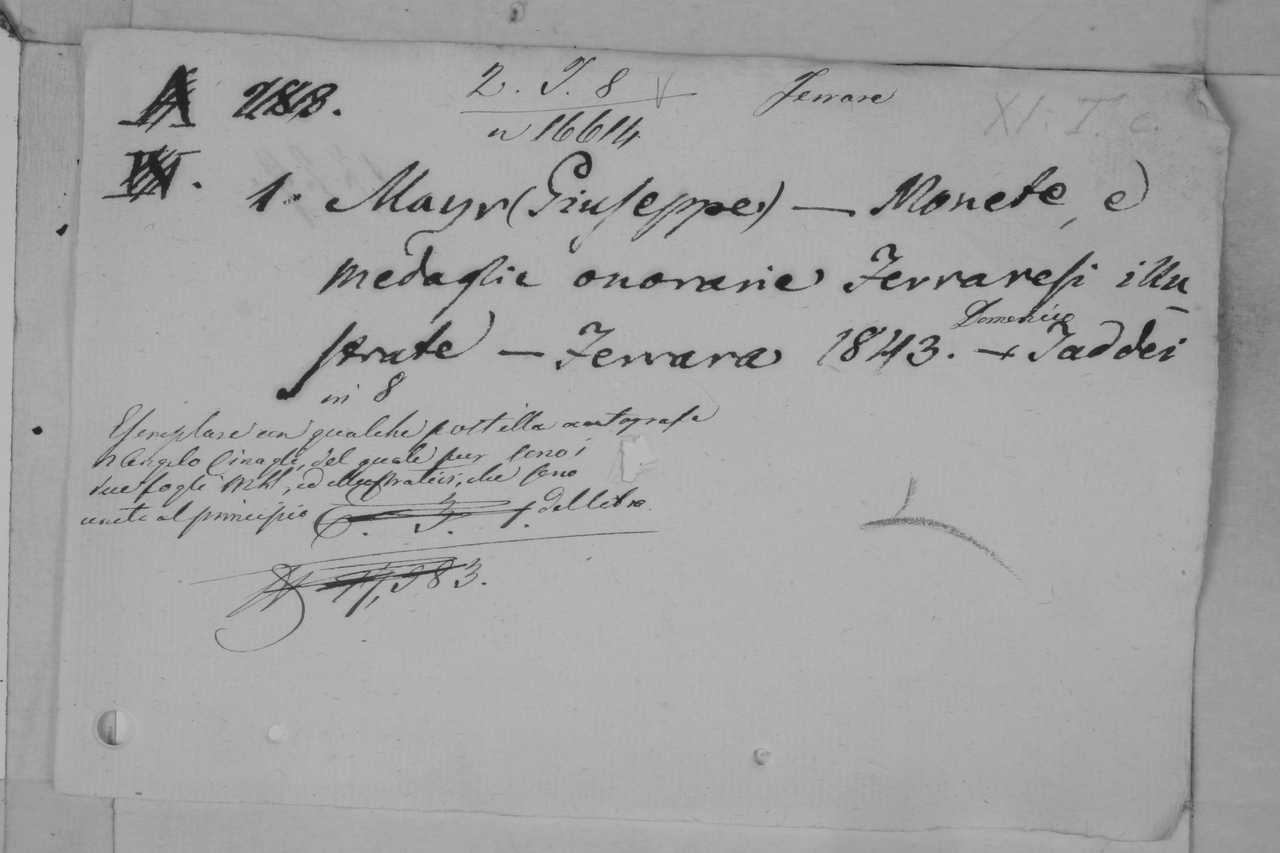 A 288. 2. I. 8 V Ferrare XI. I. c.
n 16614
IX.
1. Mayr (Giuseppe) — Monete, e
medaglie onorarie Ferraresi illu
strate — Ferrara 1843. — Domenico Taddei
in 8
Esemplare con qualche postilla autografa
d'Angelo Cinagli, del quale pur sono i
due fogli MSS, ed illustrativi, che sono
uniti al principio del libro.
17,983.